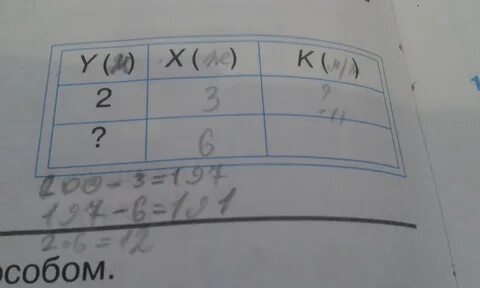 Y (м) X ( ) K ( )
2 3 ?
-11-
? 6
200-3=197
197-6=191
2·6=12
особом.
1